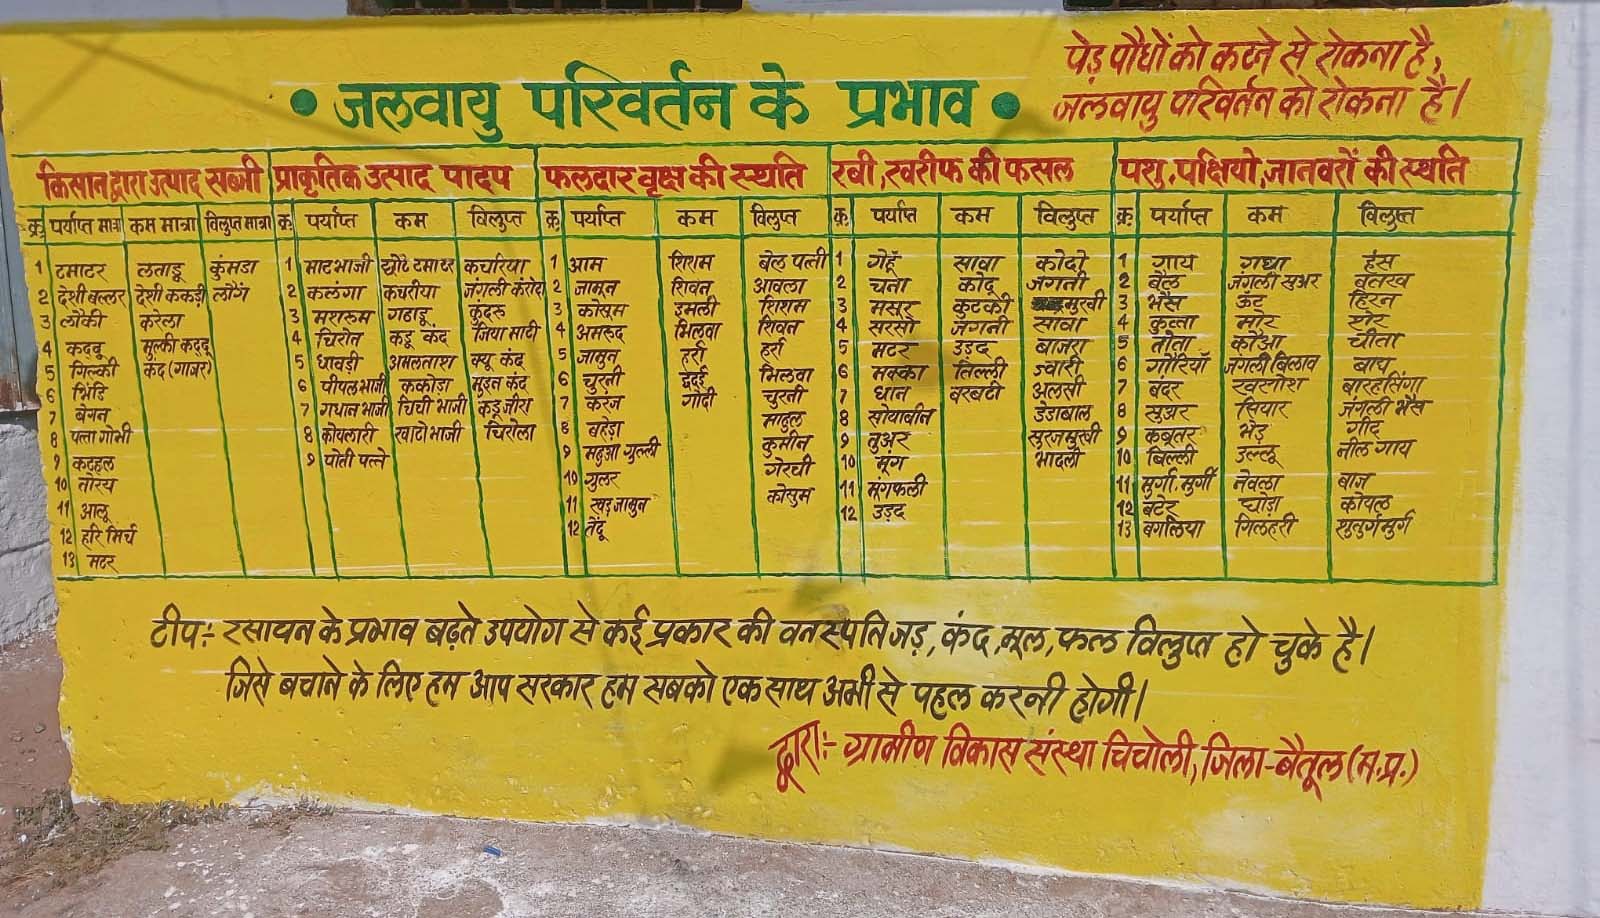 पेड़ पौधों को कटने से रोकना है,
जलवायु परिवर्तन को रोकना है।
• जलवायु परिवर्तन के प्रभाव •
किसान द्वारा उत्पाद सब्जी प्राकृतिक उत्पाद पादप फलदार वृक्ष की स्थति रबी, खरीफ की फसल पशु, पक्षियो, जानवरों की स्थति
क्र. पर्याप्त मात्रा कम मात्रा विलुप्त मात्रा क्र. पर्याप्त कम विलुप्त क्र. पर्याप्त कम विलुप्त क्र. पर्याप्त कम विलुप्त क्र. पर्याप्त कम विलुप्त
1 टमाटर लताडू कुंमडा 1 माटभाजी खोटे टमाटर कचरिया 1 आम शिशम बेल पत्ती 1 गेहूँ सावा कोदो 1 गाय गधा हंस
2 देशी बल्लर देशी ककड़ी लौंग 2 कलंगा कचरीया जंगली करोदा 2 जामून शिवन आवला 2 चना कोदू जगनी 2 बैल जंगली सुअर बतख
3 लौकी करेला 3 मशरूम गठाडू कुंदरू 3 कोसूम इमली शिशम 3 मसूर कुटकी मुखी 3 भैंस ऊंट हिरन
4 कददू मुल्की कददू 4 चिरोत कडू कंद जिया माटी 4 अमरूद भिलवा शिवन 4 सरसो जगनी सावा 4 कुत्ता मोर शेर
5 गिल्की कंद (गाजर) 5 धावड़ी अमलताश क्यू कंद 5 जामुन हर्रा हर्रा 5 मटर उड़द बाजरा 5 तोता कौआ चीता
6 भिंडि 6 पीपल भाजी ककोड़ा मुइन कंद 6 चुरनी भिलवा 6 मक्का तिल्ली ज्वारी 6 गौरियाँ जंगली बिलाव बाघ
7 बेगन 7 गधान भाजी चिची भाजी कडू जीरा 7 करंज गोंदी चुरनी 7 धान बरबटी अलसी 7 बंदर खरगोश बारहसिंगा
8 पत्ता गोभी 8 कोयलारी खाटो भाजी चिरोला 8 बहेड़ा माहुल 8 सोयाबीन डेडाबाल 8 सुअर सियार जंगली भैंस
9 कटहल 9 पोती पत्ते 9 महुआ गुल्ली कुमीन 9 तुअर सुरजमुखी 9 कबूतर भेड़ गीद
10 तोरय 10 गुलर गेरची 10 मूंग भादली 10 बिल्ली उल्लू नील गाय
11 आलू 11 खड़ जामुन कोसुम 11 मूंगफली 11 मुर्गा, मुर्गी नेवला बाज
12 हरि मिर्च 12 तेंदू 12 उड़द 12 बटेर घोड़ा कोयल
13 मटर 13 बगलिया गिलहरी सुतुर्गमुर्ग
टीप:- रसायन के प्रभाव बढ़ते उपयोग से कई प्रकार की वनस्पति जड़, कंद, मूल, फल विलुप्त हो चुके है।
जिसे बचाने के लिए हम आप सरकार हम सबको एक साथ अभी से पहल करनी होगी।
द्वारा:- ग्रामीण विकास संस्था चिचोली, जिला-बैतूल (म.प्र.)